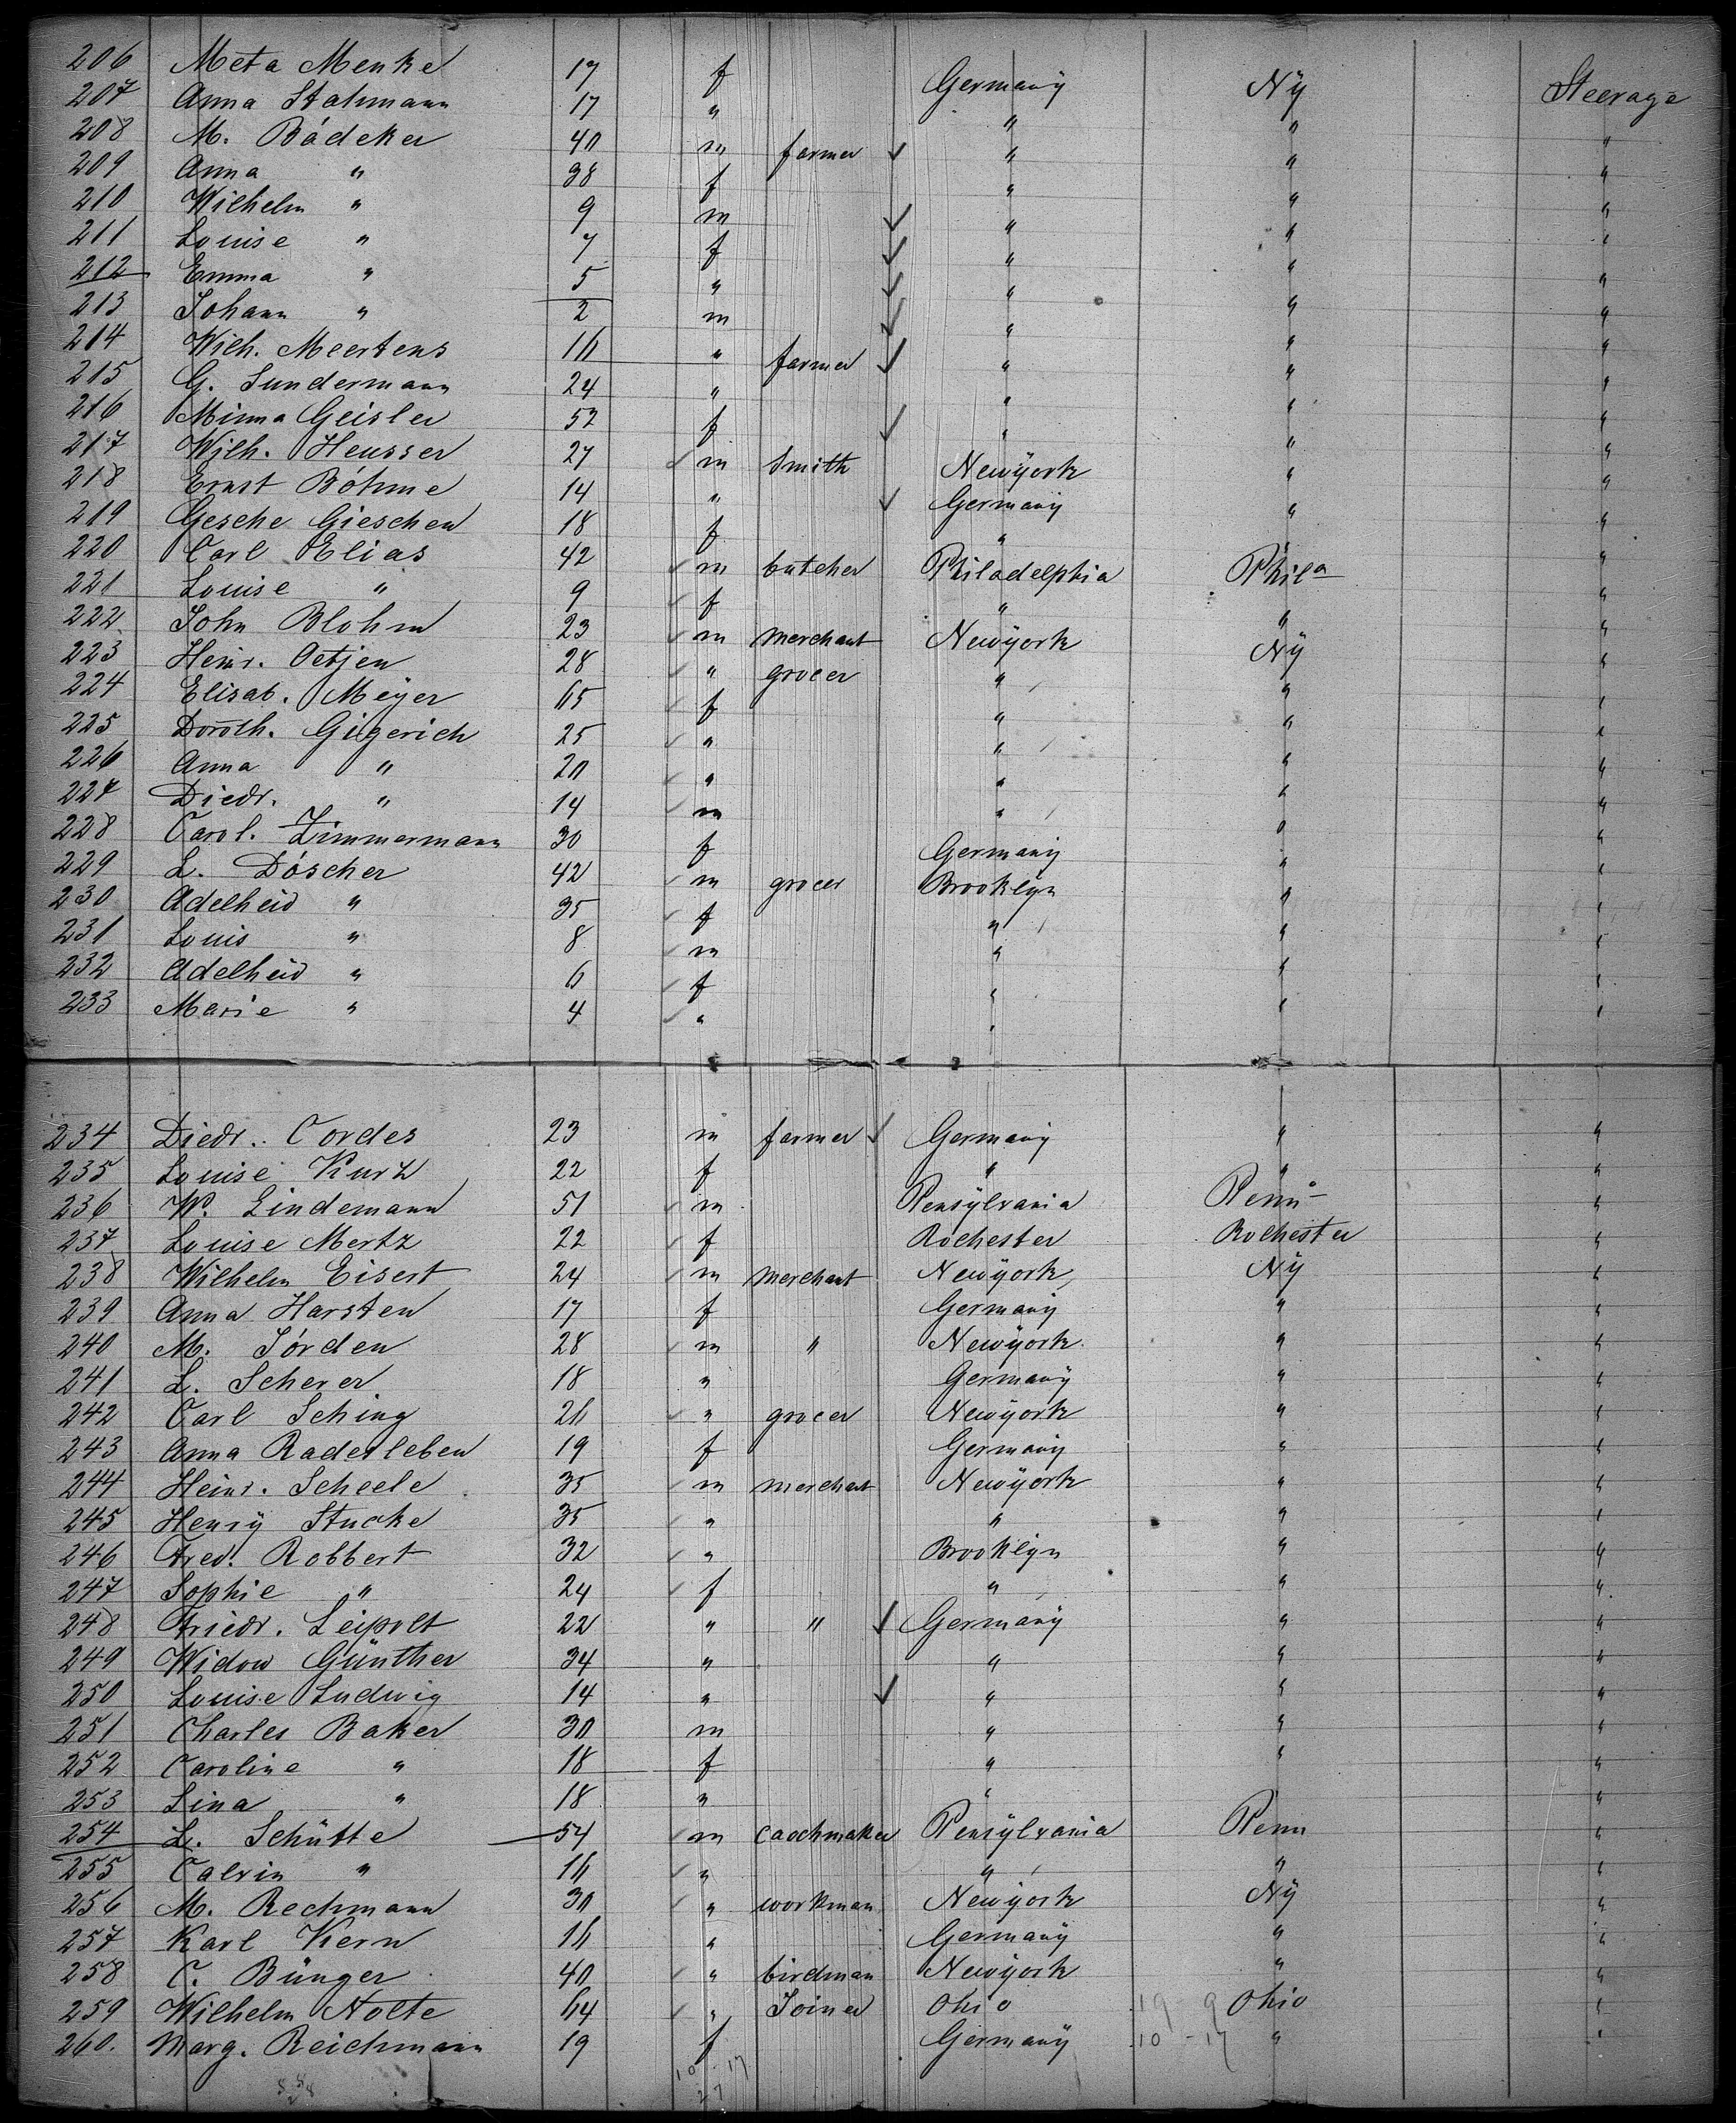 206 Meta Menke 17 f Germany Ny Steerage
207 Anna Stahmann 17 " " " "
208 M. Bädeker 40 m farmer " " "
209 Anna " 38 f " " "
210 Wilhelm " 9 m " " "
211 Louise " 7 f " " "
212 Emma " 5 " " " "
213 Johann " 2 m " " "
214 Wilh. Meertens 16 " farmer " " "
215 G. Sundermann 24 " " " "
216 Minna Geisler 52 f " " "
217 Wilh. Heusser 27 m Smith Newÿork " "
218 Ernst Böhme 14 " Germanÿ " "
219 Gesche Gieschen 18 f " " "
220 Carl Elias 42 m butcher Philadelphia Phila "
221 Louise " 9 f " " "
222 John Blohm 23 m merchant Newÿork Nÿ "
223 Heinr. Oetjen 28 " grocer " " "
224 Elisab. Meÿer 65 f " " "
225 Doroth. Gigerich 25 " " " "
226 Anna " 20 " " " "
227 Diedr. " 14 m " " "
228 Carol. Zimmermann 30 f Germanÿ " "
229 L. Döscher 42 m grocer Brooklÿn " "
230 Adelheid " 35 f " " "
231 Louis " 8 m " " "
232 Adelheid " 6 f " " "
233 Marie " 4 " " " "
234 Diedr. Cordes 23 m farmer Germanÿ " "
235 Louise Kurz 22 f " " "
236 W. Lindemann 51 m Pensÿlvania Penna "
237 Louise Mertz 22 f Rochester Rochester "
238 Wilhelm Eisert 24 m merchant Newÿork Nÿ "
239 Anna Harsten 17 f Germanÿ " "
240 M. Jörden 28 m " Newÿork " "
241 L. Scherer 18 " Germanÿ " "
242 Carl Sching 26 " grocer Newÿork " "
243 Anna Raderleben 19 f Germanÿ " "
244 Heinr. Scheele 35 m merchant Newÿork " "
245 Henrÿ Stucke 35 " " " "
246 Fred. Robbert 32 " Brooklÿn " "
247 Sophie " 24 f " " "
248 Friedr. Leipolt 22 " " Germanÿ " "
249 Widow Günther 34 " " " "
250 Louise Ludwig 14 " " " "
251 Charles Baker 30 m " " "
252 Caroline " 18 f " " "
253 Lina " 18 " " " "
254 L. Schütte 54 m caochmaker Pensÿlvania Penn "
255 Calvin " 16 " " " "
256 M. Rechmann 30 " workman Newÿork Nÿ "
257 Karl Kern 16 " Germanÿ " "
258 C. Bünger 40 " birdman Newÿork " "
259 Wilhelm Nolte 64 " Joiner Ohio 19 - 9 Ohio "
260. Marg. Reichmann 19 f Germanÿ 10 - 17 " "
10 - 17
27